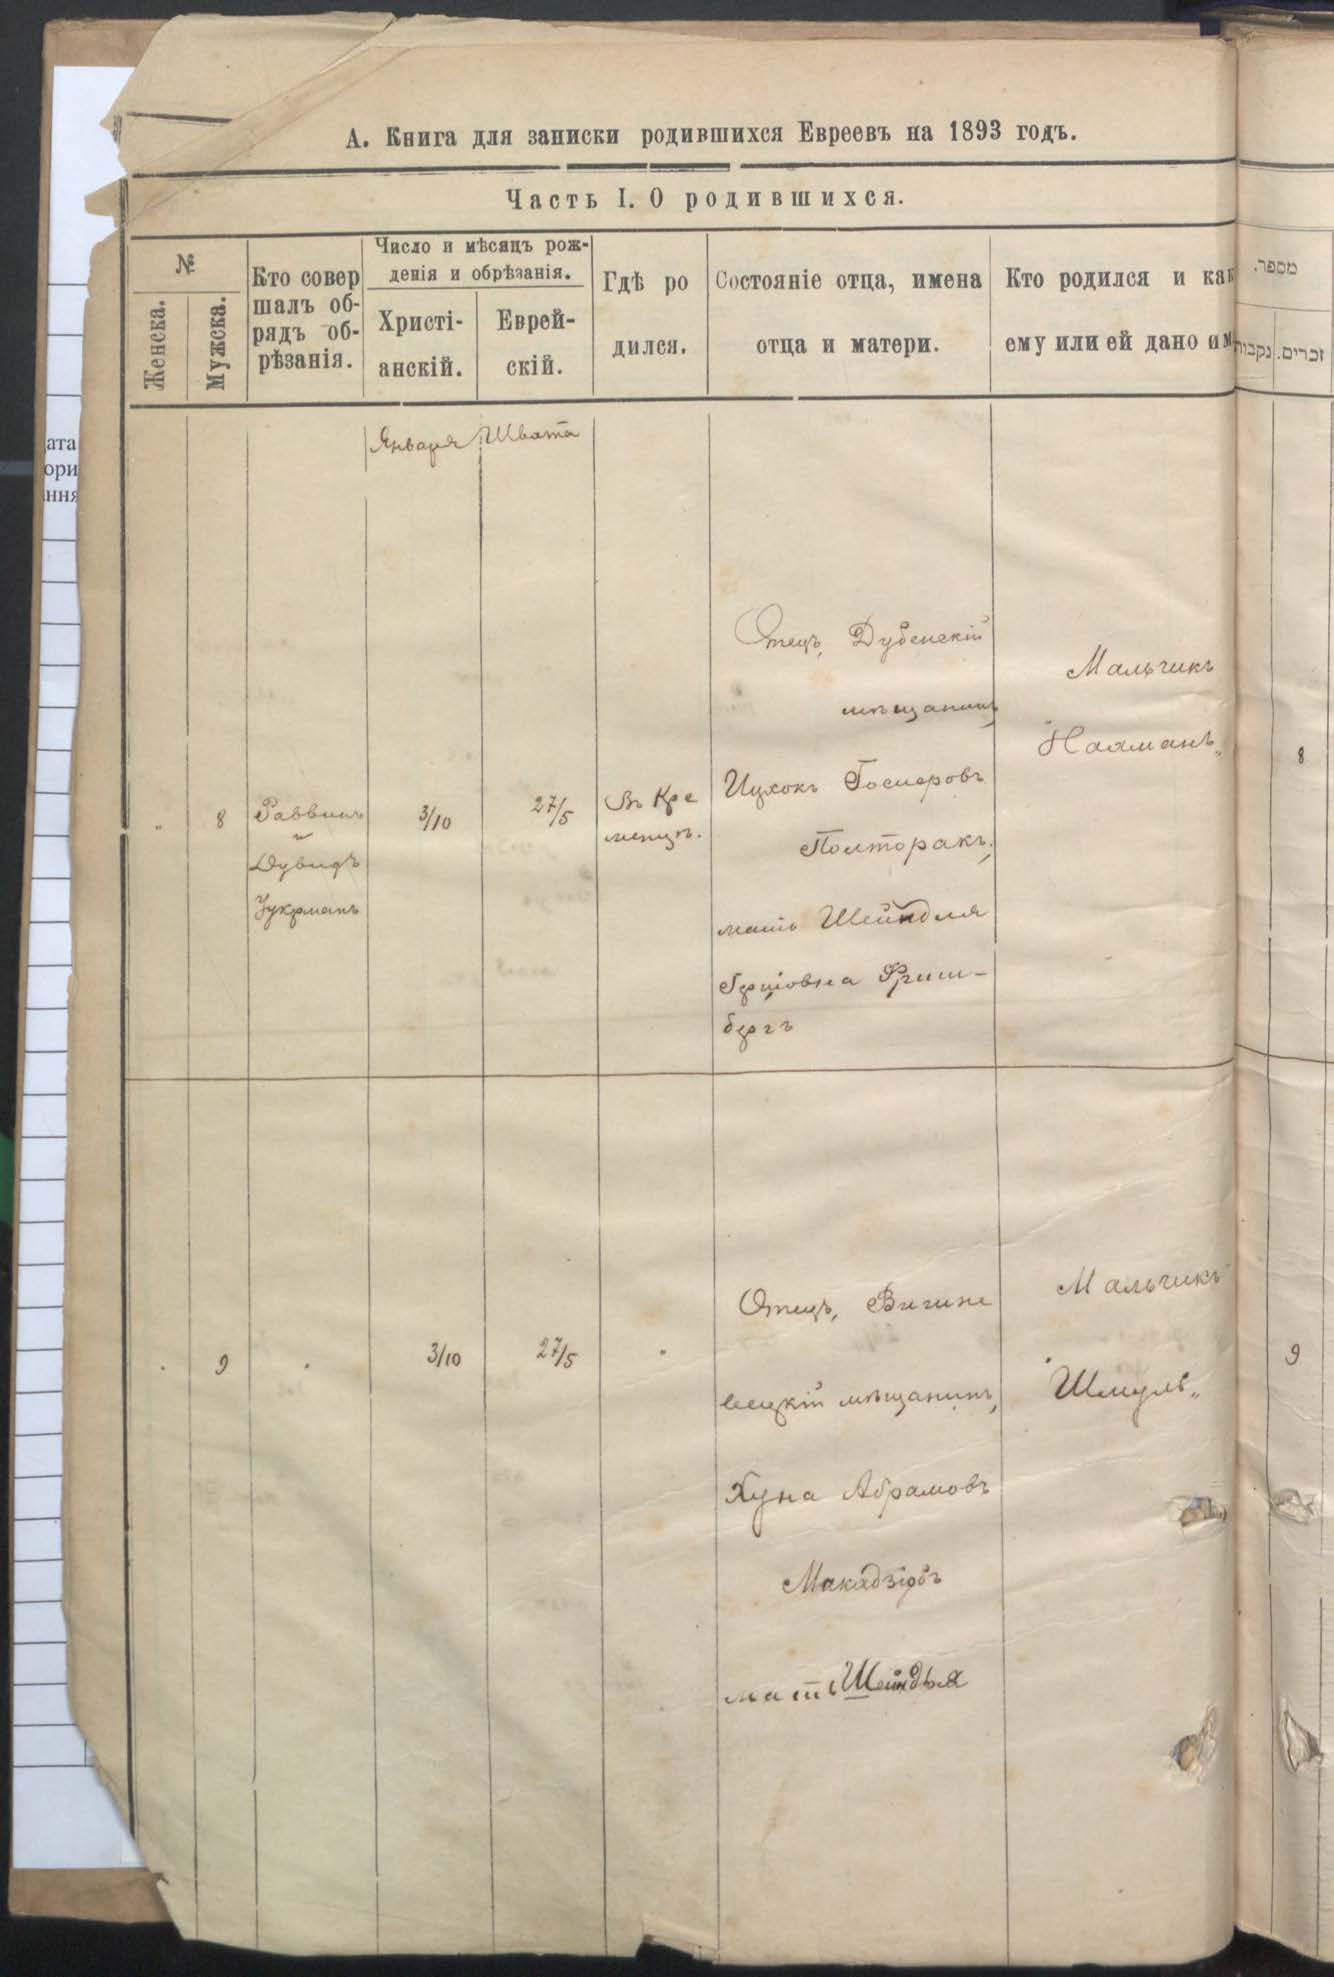 А. Книга для записки родившихся Евреевъ на 1893 годъ.
Часть I. О родившихся.
№
Женска.
Мужска.
Кто совер
шалъ об-
рядъ об-
рѣзанія.
Число и мѣсяцъ рож-
денія и обрѣзанія.
Христі-
анскій.
Еврей-
скій.
Гдѣ ро
дился.
Состояніе отца, имена
отца и матери.
Кто родился и как
ему или ей дано им
מספר.
נקבות
זכרים.
ата
ори
ння
Января
Швата
„
8
Раввинъ
и
Дувидъ
Цукрманъ
3/10
27/5
Въ Кре
менцѣ.
Отецъ, Дубенскій
мѣщанинъ,
Ицхокъ
Полторакъ,
мать Шейндля
Гершовна Фриш-
бергъ
Мальчикъ
„Нахманъ„
8
9
3/10
27/5
Отецъ, Вигине
вецкій мѣщанинъ,
Хуна Абрамовъ
мать Шейндля
Мальчикъ
„Шмуль„
9